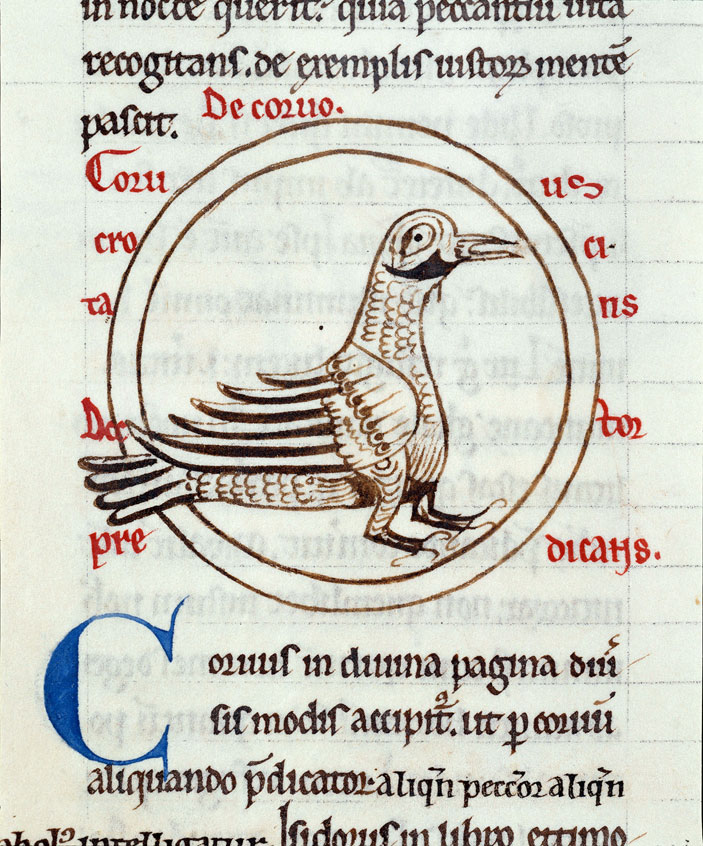 in nocte querit? quia peccantiū uita
recogitans. de exemplis iustoꝝ mentē
pascit. De coruo.
Coru us
cro ci-
ta ns
Doc tor
pre dicatis.
Coruus in diuina pagina diũ
sis modis accipit̃. ut p̱ coruū
aliquando p̄dicator aliqñ peccor̃ aliqñ
intelligatur. Isidorus in libro ettimo